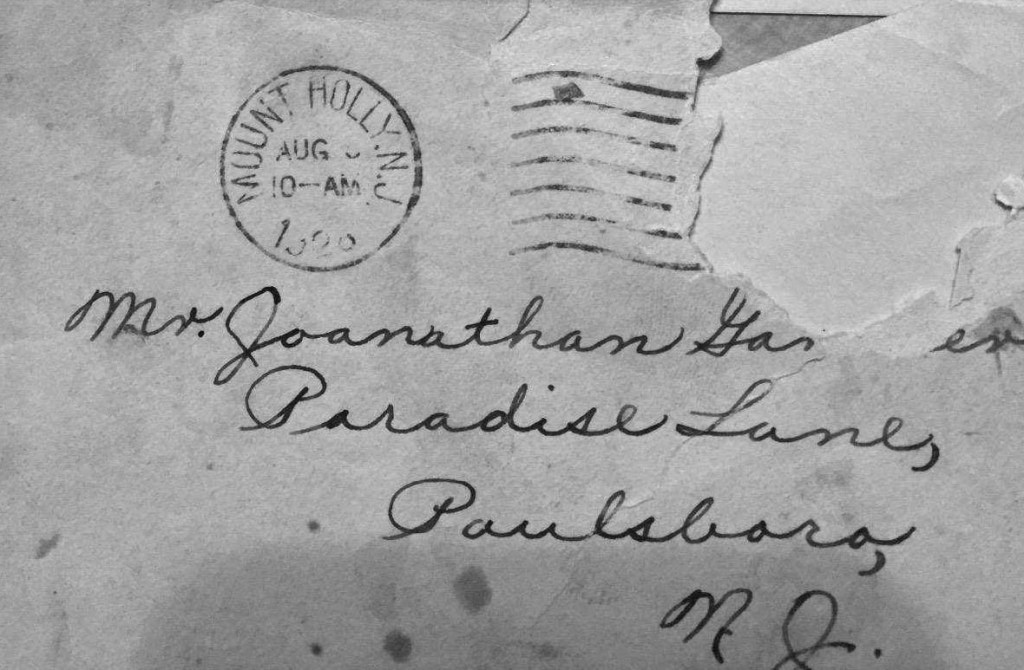 MOUNT HOLLY, N.J.
AUG
10—AM
Mr. Joanathan
Paradise Lane,
Paulsboro,
N J.